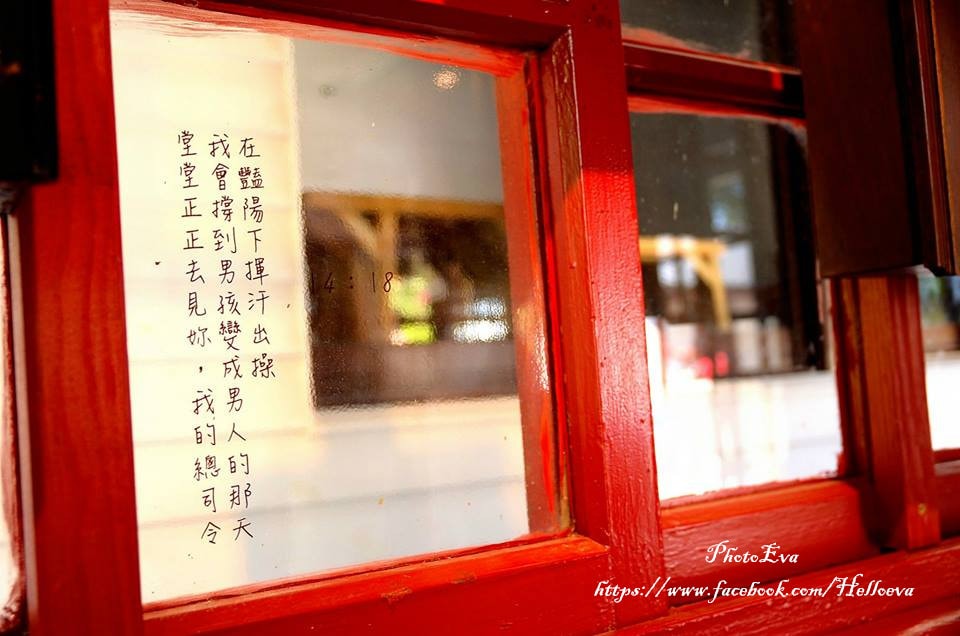 在豔陽下揮汗出操
我會撐到男孩變成男人的那天
堂堂正正去見妳，我的總司令
14:18
PhotoEva
https://www.facebook.com/Helloeva